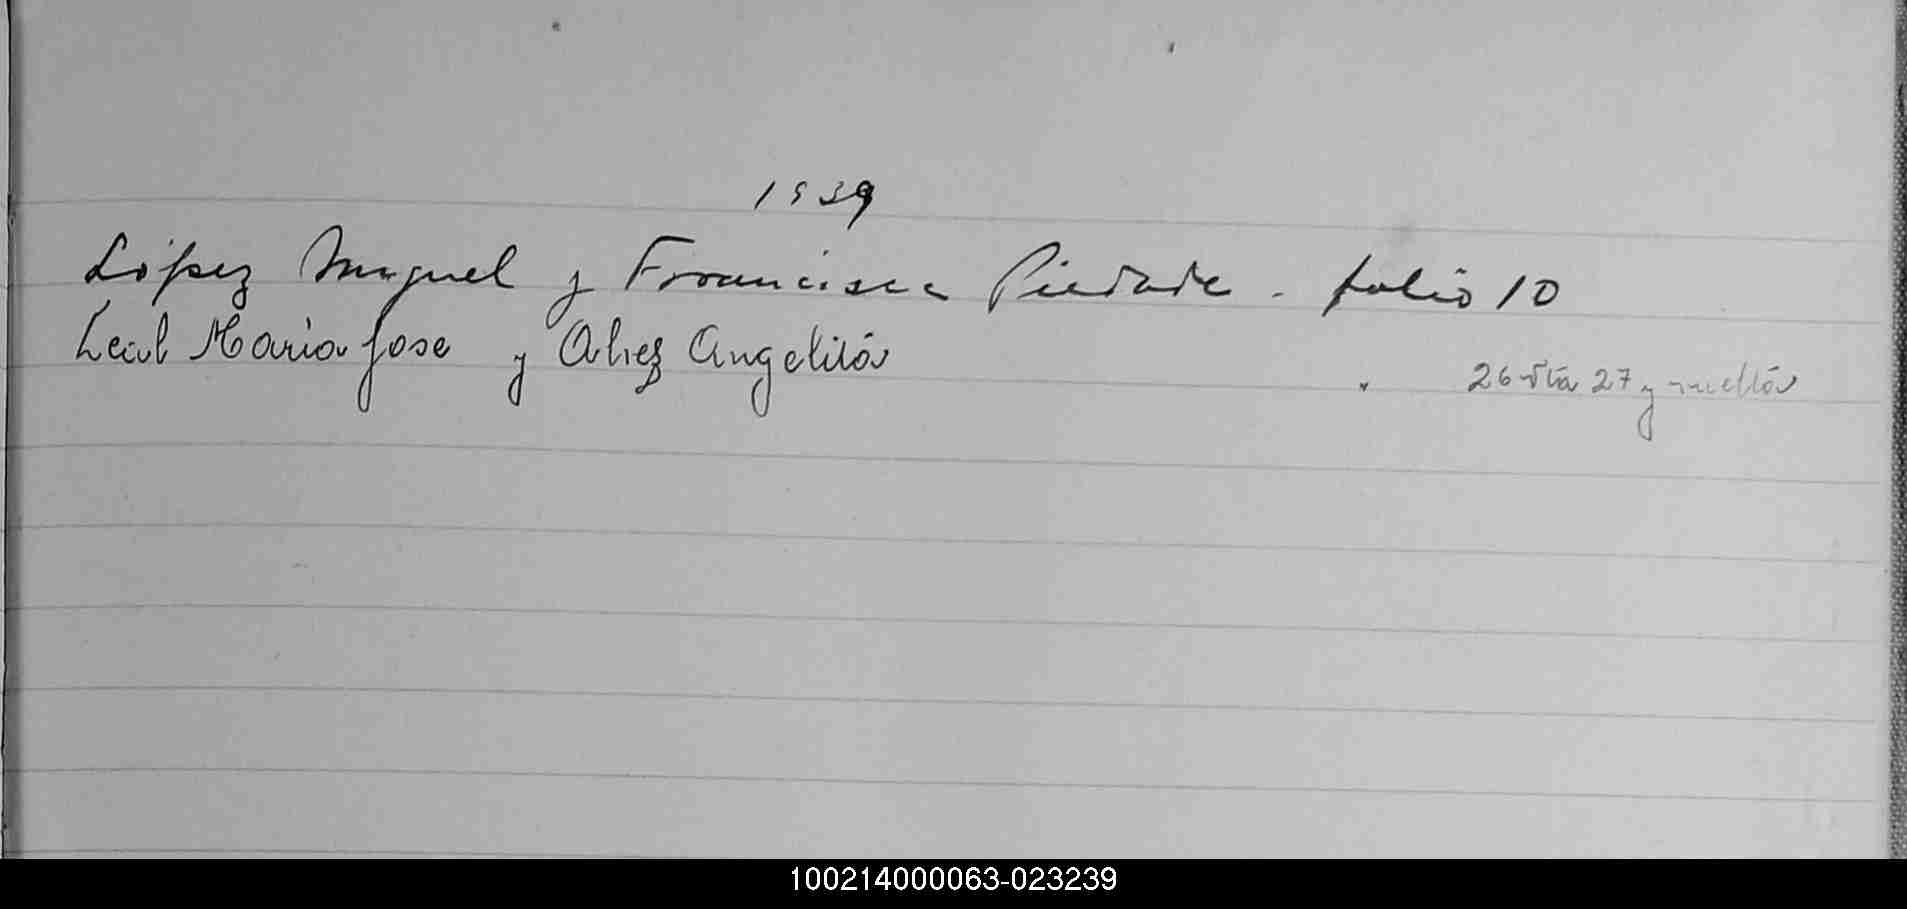 1939
López Miguel y Francisca Piedade - folio 10
Leal Maria Jose y Alvez Angelita " 26 vta 27 y vuelta
100214000063-023239